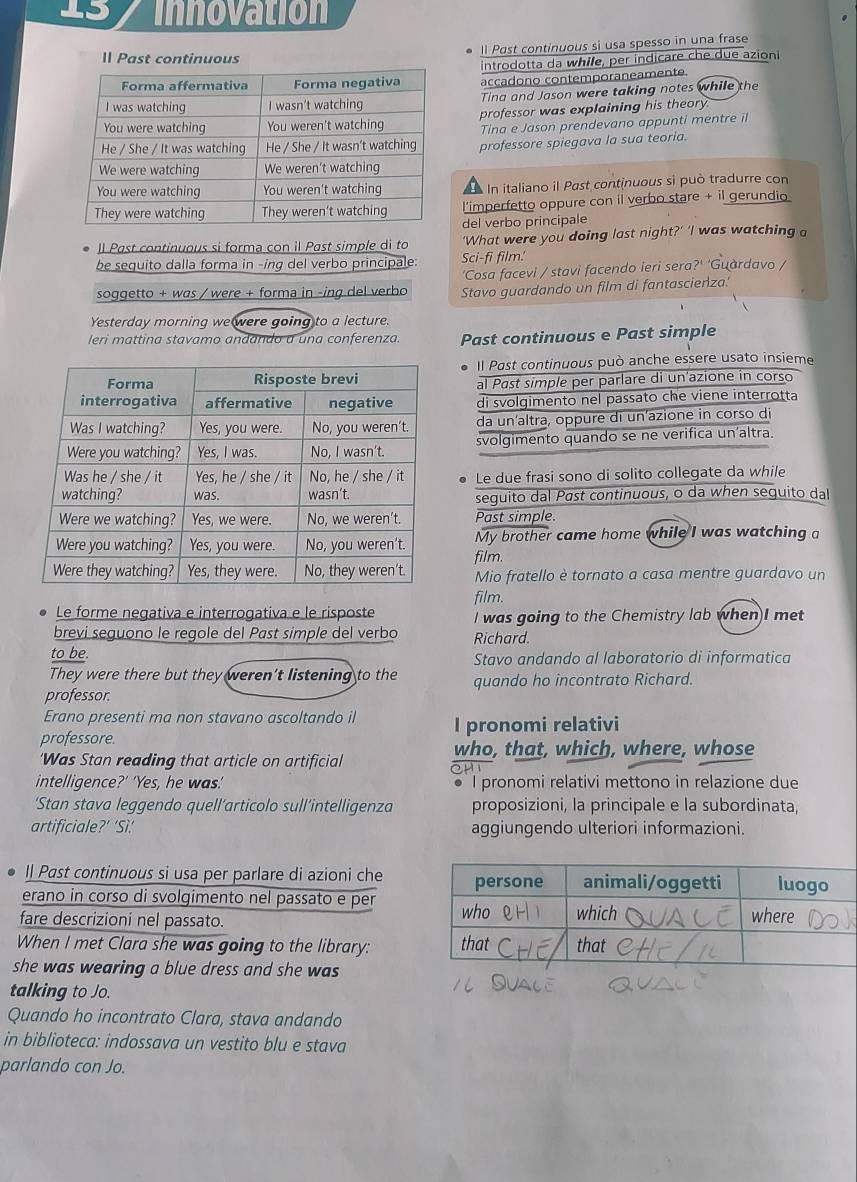 13 / Innovation
Il Past continuous
Forma affermativa Forma negativa
I was watching I wasn't watching
You were watching You weren't watching
He / She / It was watching He / She / It wasn't watching
We were watching We weren't watching
You were watching You weren't watching
They were watching They weren't watching
Il Past continuous si forma con il Past simple di to
be seguito dalla forma in -ing del verbo principale:
soggetto + was / were + forma in -ing del verbo
Yesterday morning we were going to a lecture.
Ieri mattina stavamo andando a una conferenza.
Forma interrogativa Risposte brevi
affermative negative
Was I watching? Yes, you were. No, you weren't.
Were you watching? Yes, I was. No, I wasn't.
Was he / she / it Yes, he / she / it No, he / she / it
watching? was. wasn't.
Were we watching? Yes, we were. No, we weren't.
Were you watching? Yes, you were. No, you weren't.
Were they watching? Yes, they were. No, they weren't.
Le forme negativa e interrogativa e le risposte
brevi seguono le regole del Past simple del verbo
to be.
They were there but they weren't listening to the
professor.
Erano presenti ma non stavano ascoltando il
professore.
'Was Stan reading that article on artificial
intelligence?' 'Yes, he was.'
'Stan stava leggendo quell'articolo sull'intelligenza
artificiale?' 'Sì.'
Il Past continuous si usa per parlare di azioni che
erano in corso di svolgimento nel passato e per
fare descrizioni nel passato.
When I met Clara she was going to the library:
she was wearing a blue dress and she was
talking to Jo.
Quando ho incontrato Clara, stava andando
in biblioteca: indossava un vestito blu e stava
parlando con Jo.
Il Past continuous si usa spesso in una frase
introdotta da while, per indicare che due azioni
accadono contemporaneamente.
Tina and Jason were taking notes while the
professor was explaining his theory.
Tina e Jason prendevano appunti mentre il
professore spiegava la sua teoria.
In italiano il Past continuous si può tradurre con
l'imperfetto oppure con il verbo stare + il gerundio
del verbo principale
'What were you doing last night?' 'I was watching a
Sci-fi film.'
'Cosa facevi / stavi facendo ieri sera?' 'Guardavo /
Stavo guardando un film di fantascienza.'
Past continuous e Past simple
Il Past continuous può anche essere usato insieme
al Past simple per parlare di un'azione in corso
di svolgimento nel passato che viene interrotta
da un'altra, oppure di un'azione in corso di
svolgimento quando se ne verifica un'altra.
Le due frasi sono di solito collegate da while
seguito dal Past continuous, o da when seguito dal
Past simple.
My brother came home while I was watching a
film.
Mio fratello è tornato a casa mentre guardavo un
film.
I was going to the Chemistry lab when I met
Richard.
Stavo andando al laboratorio di informatica
quando ho incontrato Richard.
I pronomi relativi
who, that, which, where, whose
CHI
I pronomi relativi mettono in relazione due
proposizioni, la principale e la subordinata,
aggiungendo ulteriori informazioni.
persone animali/oggetti luogo
who CHI which QUALE where
that CHE/ that CHE/IL
IL QUALE QUALE